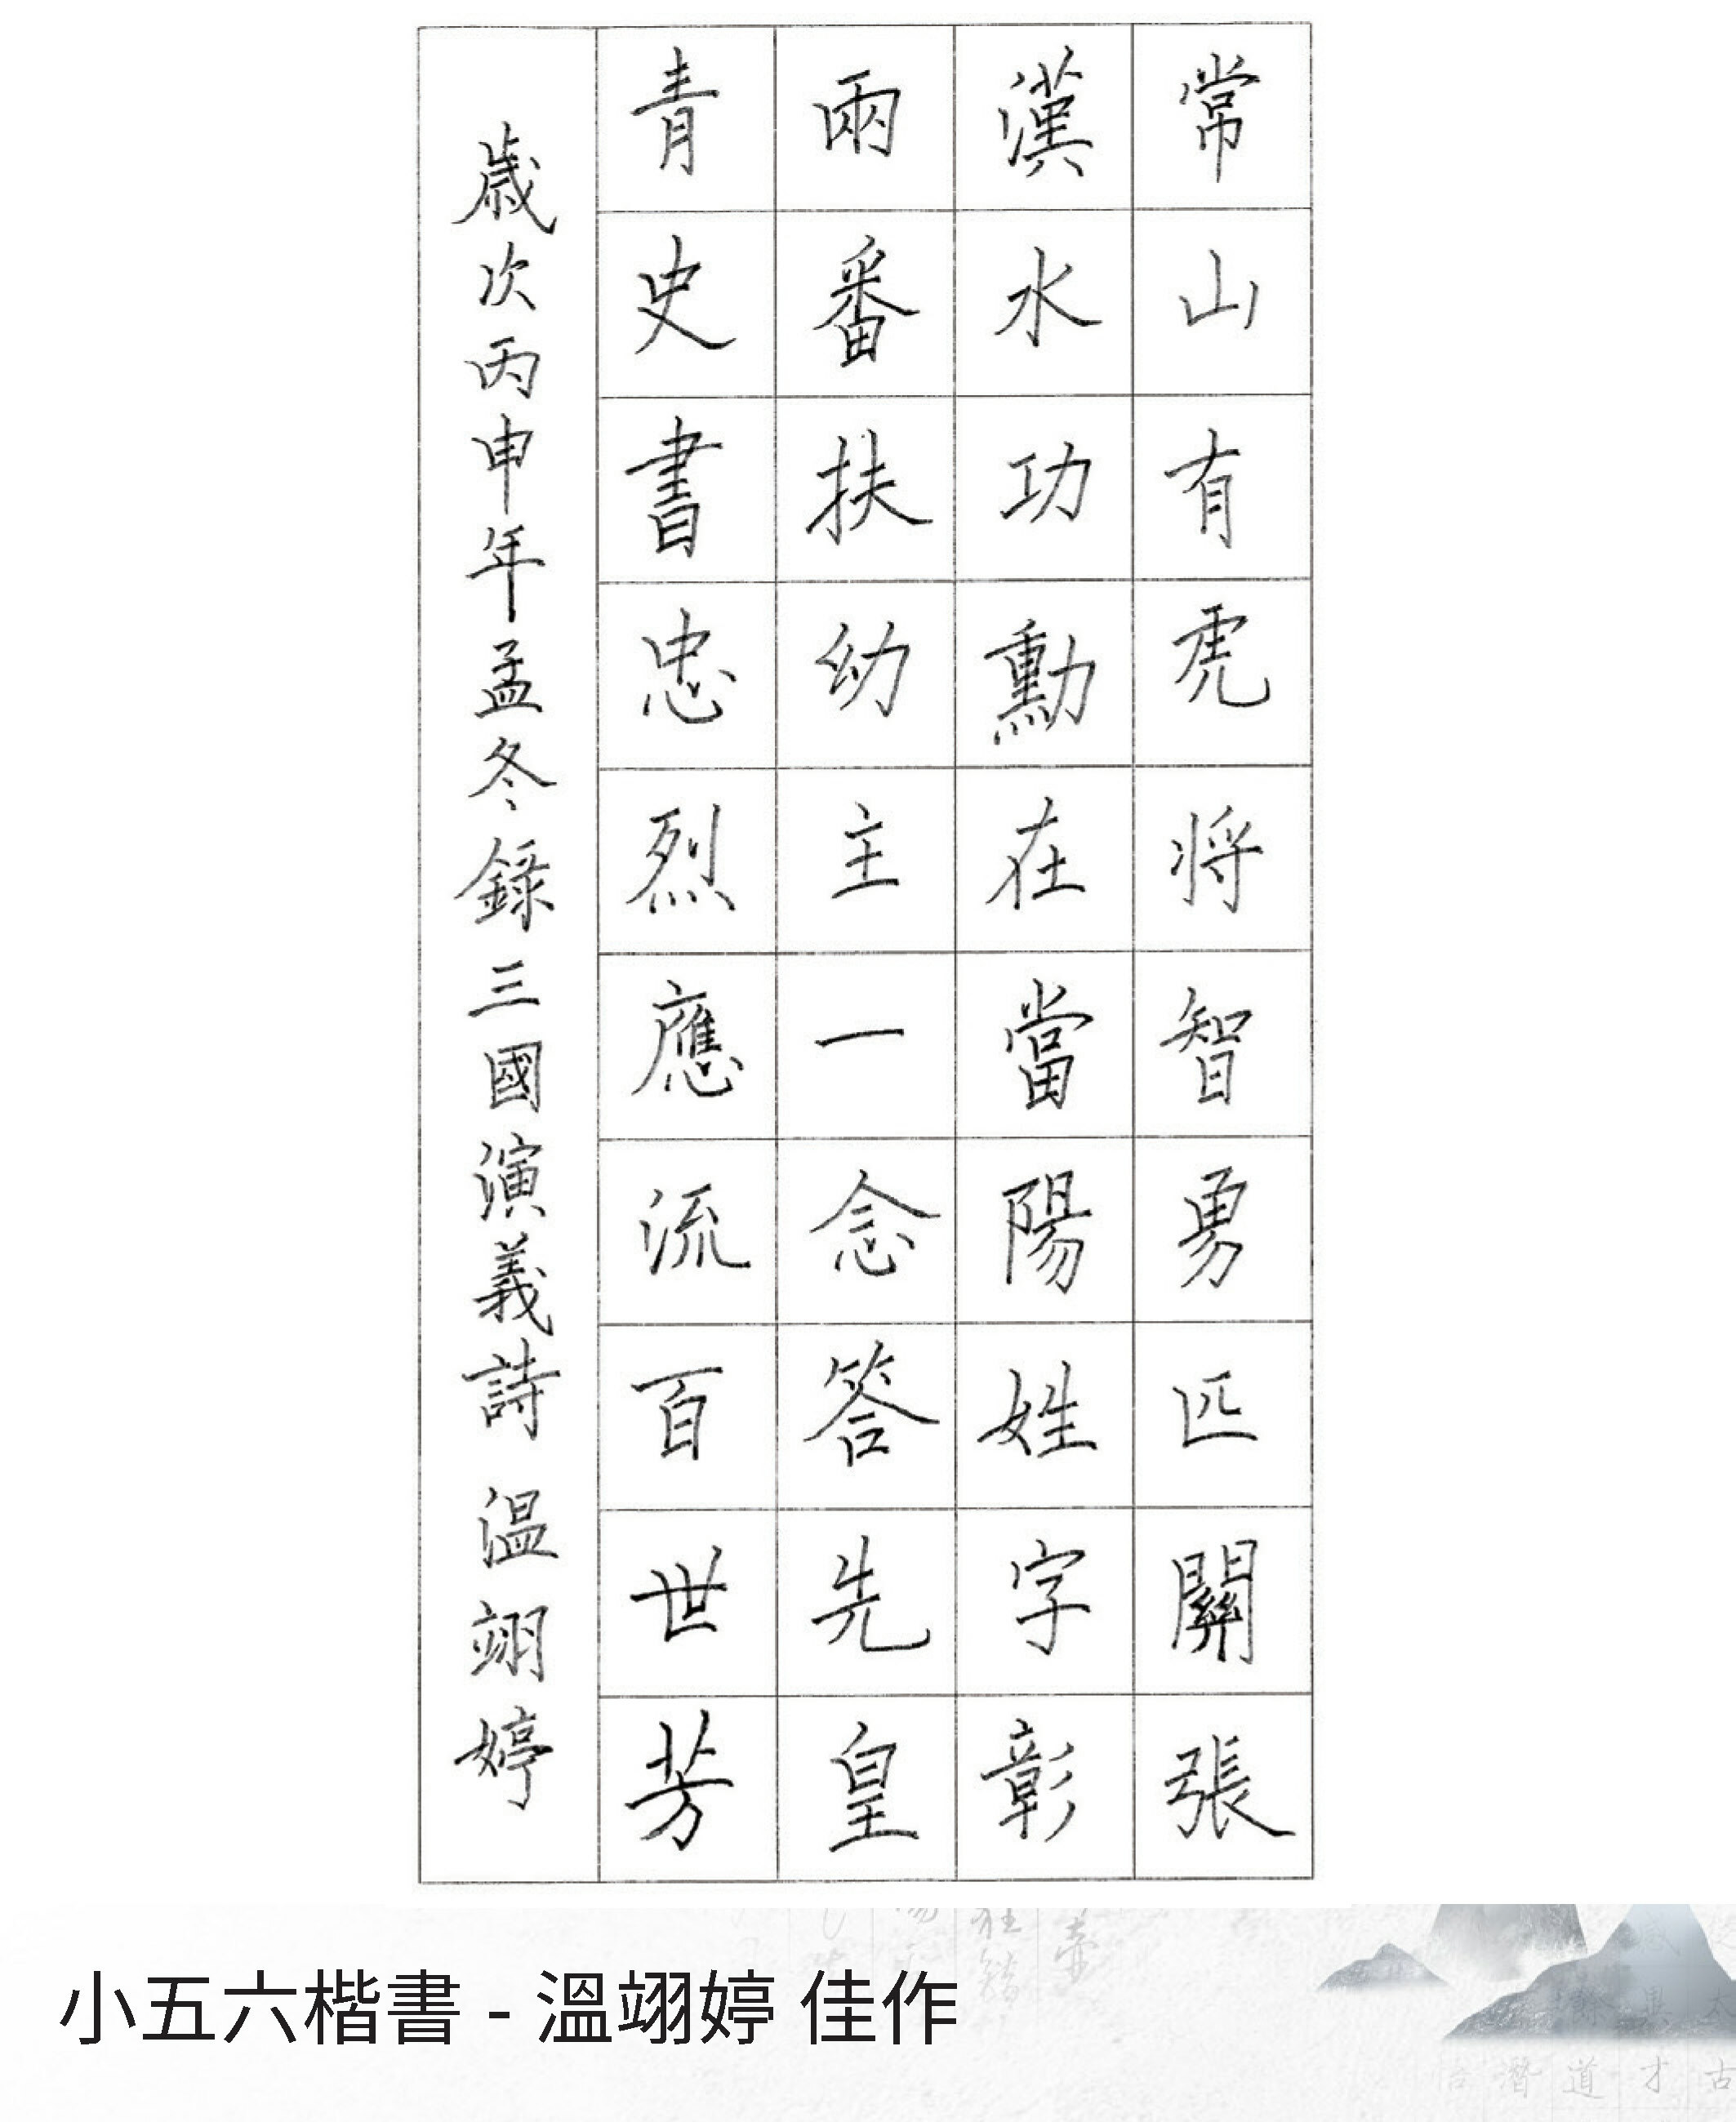 常山有虎將智勇匹關張
漢水功勳在當陽姓字彰
兩番扶幼主一念答先皇
青史書忠烈應流百世芳
歲次丙申年孟冬錄三國演義詩 溫翊婷
小五六楷書 - 溫翊婷 佳作